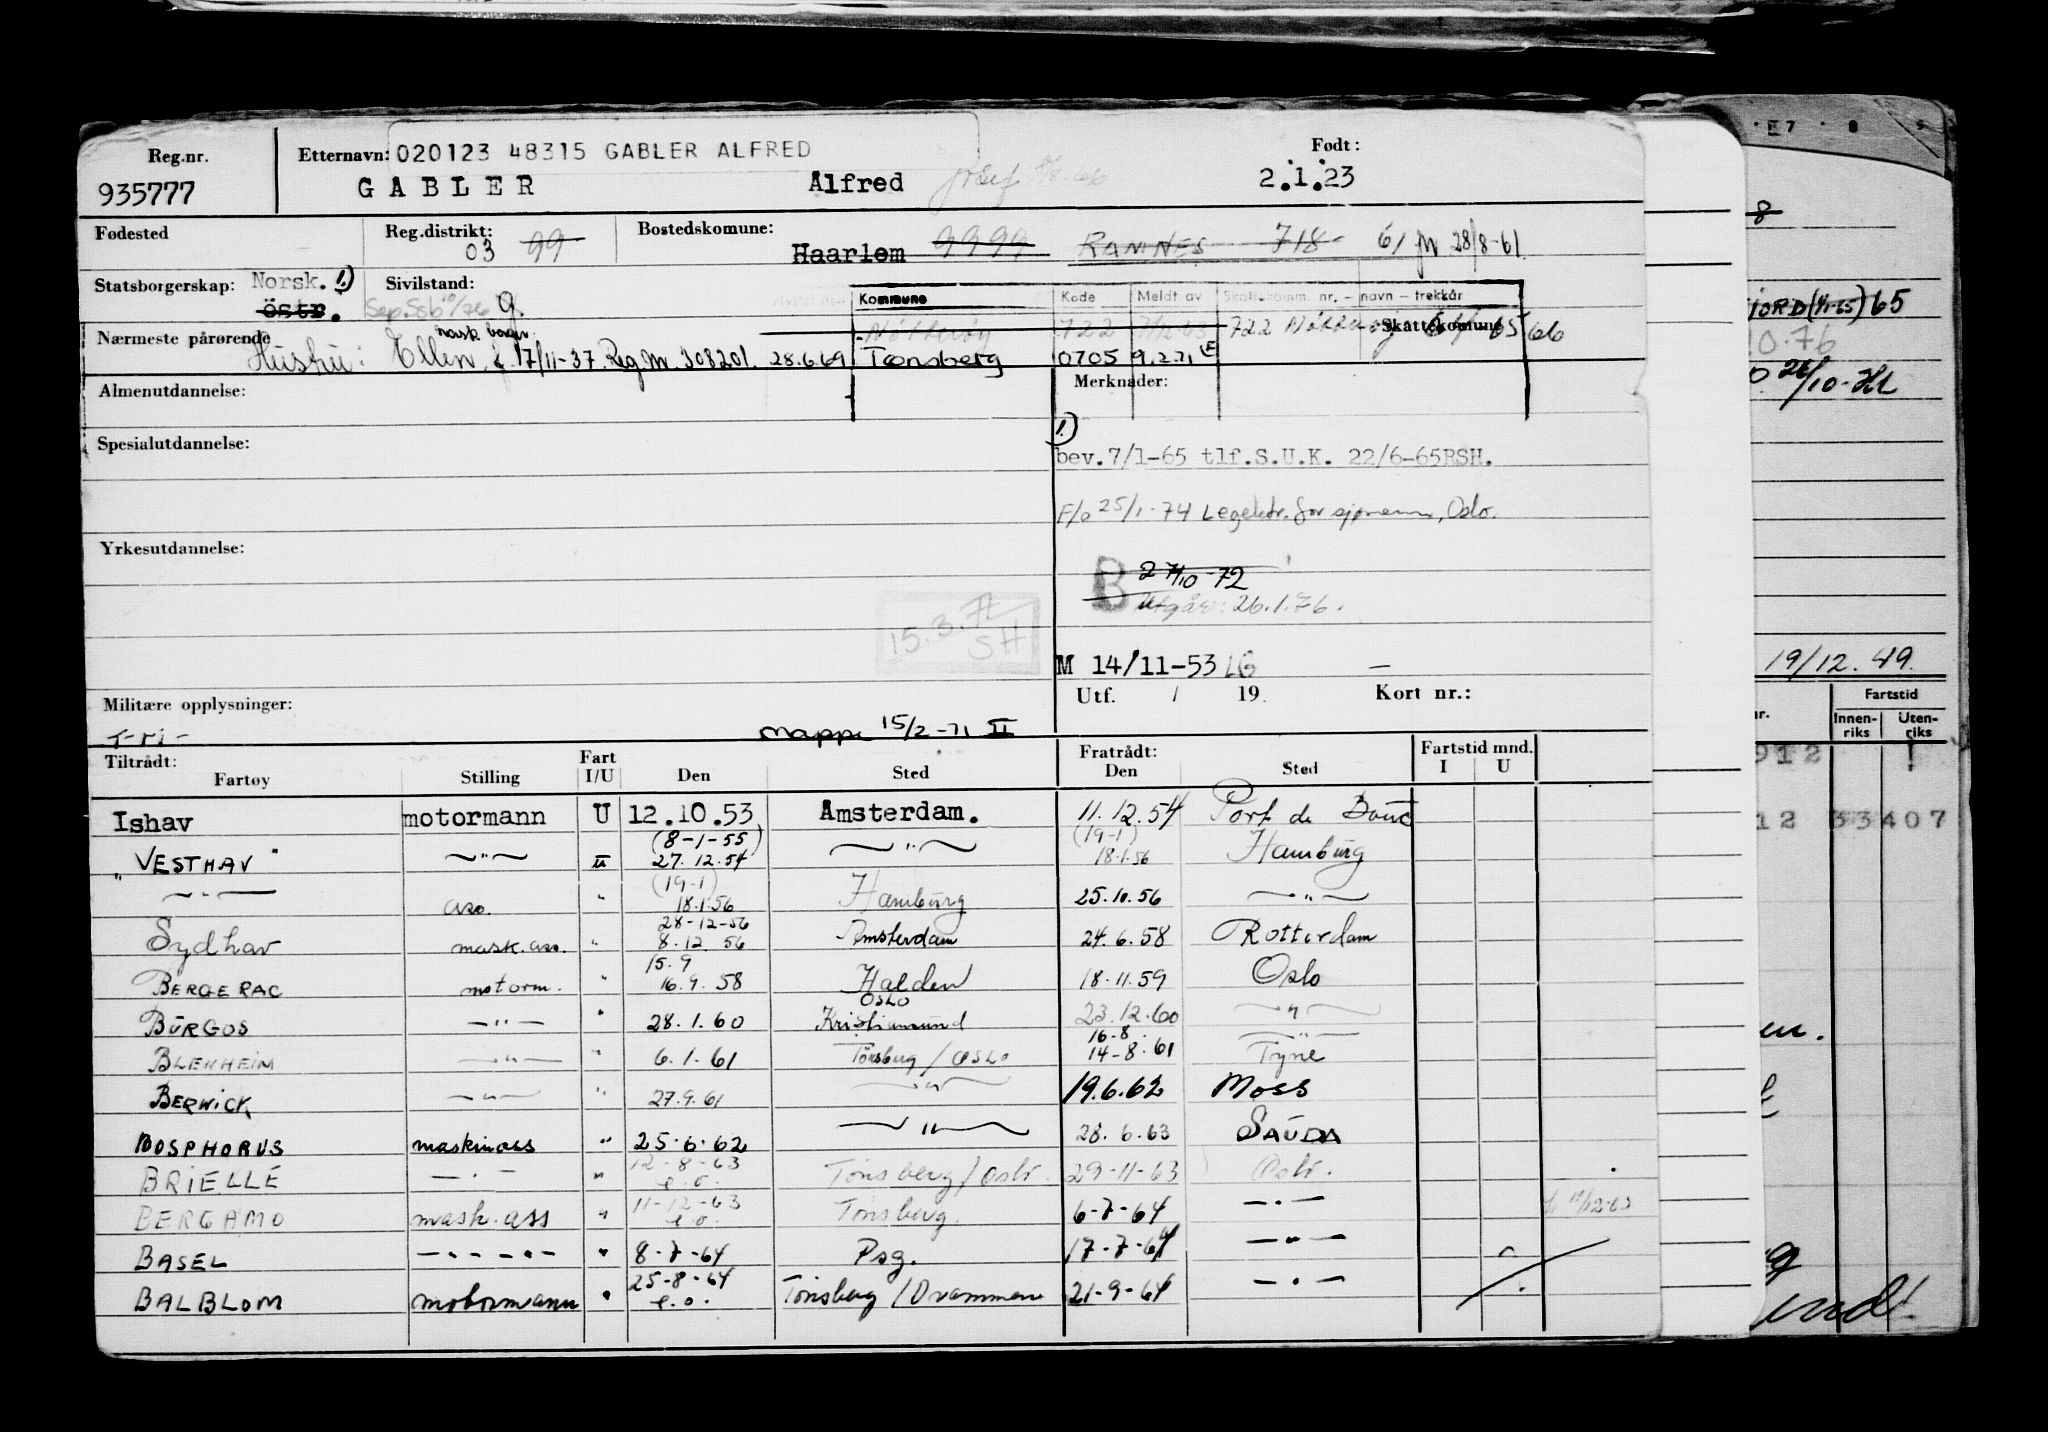 Reg.nr. Etternavn: 020123 48315 GABLER ALFRED Født:
935777 GABLER Alfred 2.1.23
Fødested Reg.distrikt: 03 99 Bostedskomune: Haarlem 9999 RAMNES 718 61 28/8-61
Statsborgerskap: Norsk. 1) östr. Sivilstand: g.
Kommune Kode Meldt av Skattekomm. nr. – navn – trekkår
722 722 Skattekomune 65 66
Nærmeste pårørende norsk borger
Hustru: Ellen, f. 17/11-37. Reg.nr. 308201. 28.6.69 Tønsberg 0705 9.2.71
Almenutdannelse: Merknader:
1)
Spesialutdannelse: bev. 7/1-65 tlf.S.U.K. 22/6-65RSH.
E/o 25/1-74 Legektr. for sjømenn, Oslo.
Yrkesutdannelse:
B 27/10-72
Utgår: 26.1.76.
15.3.71
SH
M 14/11-53 LG –
Utf. / 19. Kort nr.:
Militære opplysninger:
Mappe 15/2-71 II
Tiltrådt: Fart Fratrådt: Fartstid mnd.
Fartøy Stilling I/U Den Sted Den Sted I U
Ishav motormann U 12.10.53 Amsterdam. 11.12.54 Port de Bouc
(8-1-55) (19-1)
"VESTHAV" —"— U 27.12.54 —"— 18.1.56 Hamburg
(19-1)
—"— ass. " 18.1.56 Hamburg 25.10.56 —"—
28-12-56
Sydhav mask.ass. " 8.12.56 Amsterdam 24.6.58 Rotterdam
15.9
BERGERAC motorm. " 16.9.58 Halden 18.11.59 Oslo
OSLO
BURGOS —"— " 28.1.60 Kristiansund 23.12.60 —"—
16-8
BLENHEIM —"— " 6.1.61 Tønsberg / OSLO 14-8.61 Tyne
BERWICK —"— " 27.9.61 —"— 19.6.62 Moss
BOSPHORUS maskinass " 25.6.62 —"— 28.6.63 SAUDA
BRIELLE —"— " 12-8-63 e.o. Tønsberg / Oslo. 29-11-63 Oslo.
BERGAMO mask.ass " 11-12-63 e.o. Tønsberg. 6-7-64 —"—
BASEL —"— " 8-7-64 Psg. 17-7-64 —"—
BALBLOM motormann " 25-8-64 e.o. Tønsberg / Drammen 21-9-64 —"—
7 8 9
8
JORD (4/1-65) 65
10.76
26/10-
19/12.49.
Fartstid
Innen-riks Uten-riks
912
12 33407